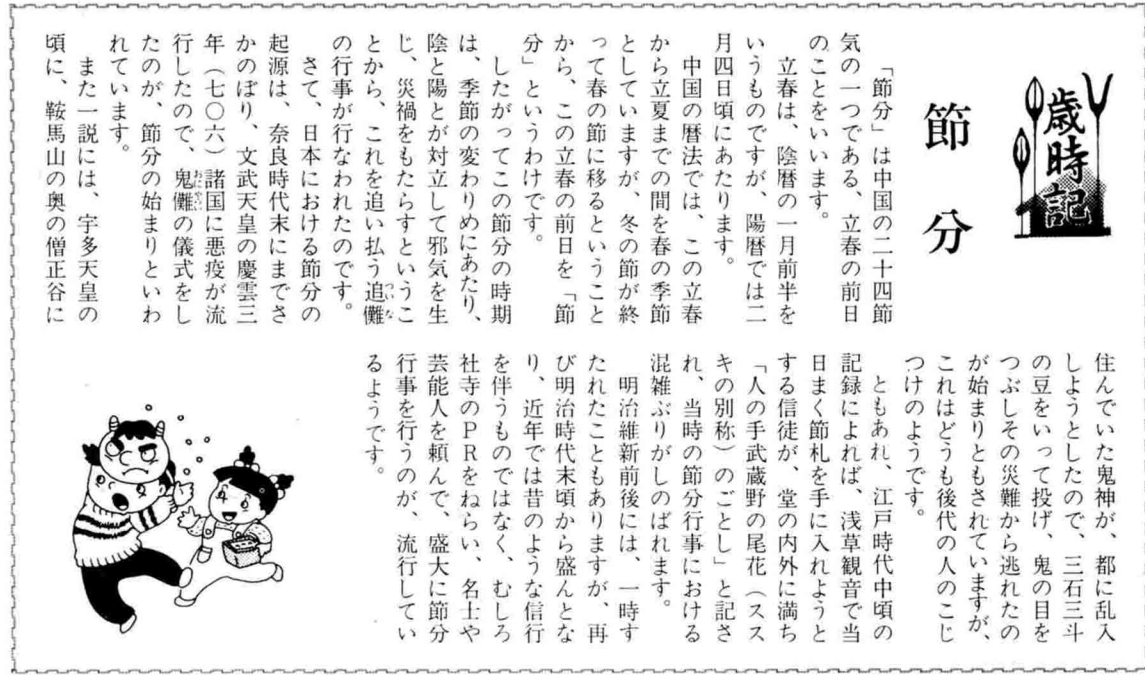 歳時記
節分
「節分」は中国の二十四節
気の一つである、立春の前日
のことをいいます。
立春は、陰暦の一月前半を
いうものですが、陽暦では二
月四日頃にあたります。
中国の暦法では、この立春
から立夏までの間を春の季節
としていますが、冬の節が終
って春の節に移るということ
から、この立春の前日を「節
分」というわけです。
したがってこの節分の時期
は、季節の変わりめにあたり、
陰と陽とが対立して邪気を生
じ、災禍をもたらすというこ
とから、これを追い払う追儺
の行事が行なわれたのです。
さて、日本における節分の
起源は、奈良時代末にまでさ
かのぼり、文武天皇の慶雲三
年(七〇六)諸国に悪疫が流
行したので、鬼儺の儀式をし
たのが、節分の始まりといわ
れています。
また一説には、宇多天皇の
頃に、鞍馬山の奥の僧正谷に
住んでいた鬼神が、都に乱入
しようとしたので、三石三斗
の豆をいって投げ、鬼の目を
つぶしその災難から逃れたの
が始まりともされていますが、
これはどうも後代の人のこじ
つけのようです。
ともあれ、江戸時代中頃の
記録によれば、浅草観音で当
日まく節札を手に入れようと
する信徒が、堂の内外に満ち
「人の手武蔵野の尾花(スス
キの別称)のごとし」と記さ
れ、当時の節分行事における
混雑ぶりがしのばれます。
明治維新前後には、一時す
たれたこともありますが、再
び明治時代末頃から盛んとな
り、近年では昔のような信行
を伴うものではなく、むしろ
社寺のPRをねらい、名士や
芸能人を頼んで、盛大に節分
行事を行うのが、流行してい
るようです。